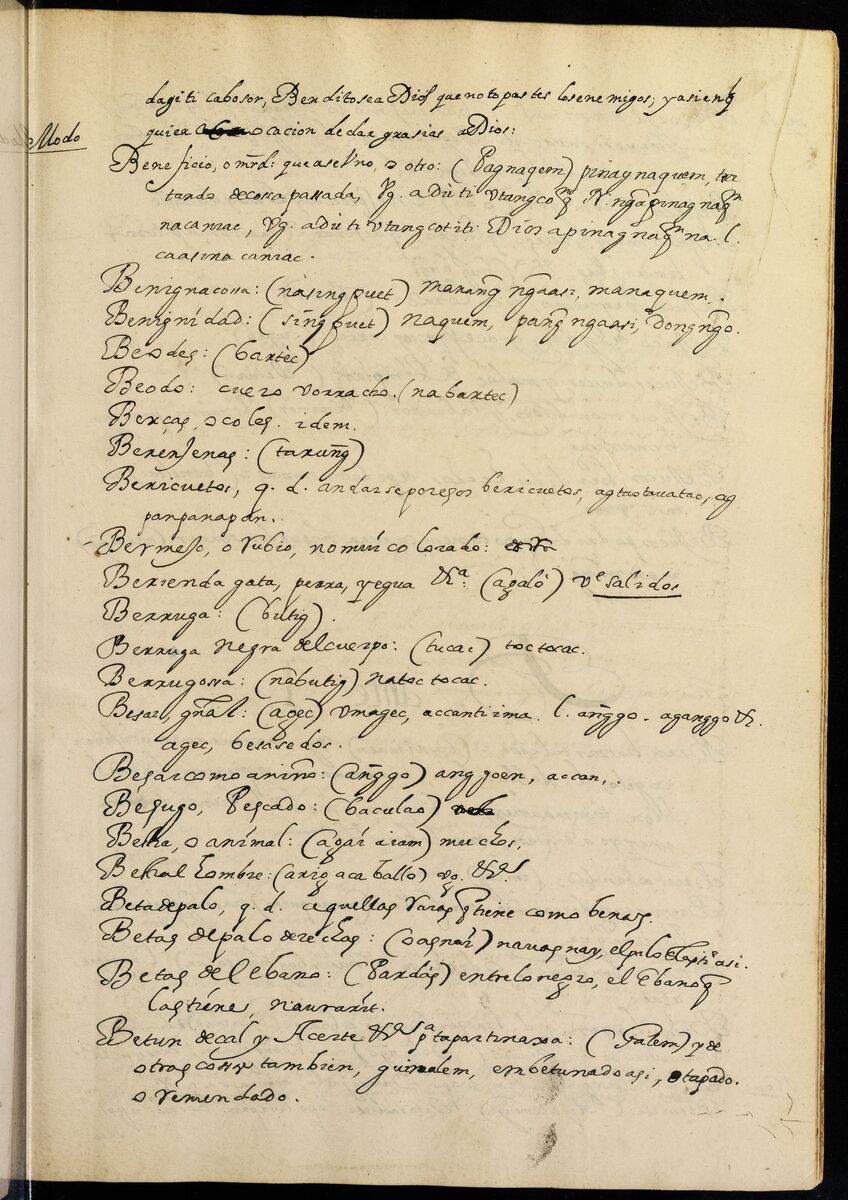 dagiti cabosor, Bendito sea Dios que no topastes los enemigos; y asi en
quier ocacion de dar grasias a Dios:
Modo
Beneficio, o mrd: que ase Vno, a otro: (Pagnaquem) pinagnaquem, tra
tando de cossa passada, Vg. adu ti vtangco
nacaniac, Vg. adu ti vtangco titi Dios a pinagnaqm na. l.
caasina caniac.
Benigna cossa: (nasingpuet) marang ngaasi, manaquem,.
Benignidad: (singpuet) naquem, pang ngaasi, dongngo.
Beodes: (bartèc)
Beodo: cuero vorracho. (nabartec)
Berças, o coles. idem.
Berenjenas: (tarung)
Bericuetos, q. d. andarse por esos bericuetos, agtaotauatao, ag
panpanapan.
Bermejo, o rubio, no mui colorado:
Berrienda gata, perra, yegua &ra: (agaló) ve salidos
Berruga: (butig).
Berruga negra del cuerpo: (tucac) toctocac.
Berrugossa: (nabutig) natoctocac.
Besar, gñal: (agec) vmagec, accant iima. l. anggo. aganggo &.
agec, besasedos.
Besar como a niño: (anggo) anggoen, accan,.
Besugo, Pescado: (baculao)
Bestia, o animal: (agari aiam) muchos,
Bestial hombre: (arig a caballo) vg. &
Beta de palo, q. d. aquellas Varas q tiene como benas.
Betas de palo derechas: (oasnai) nauasnay, el palo asi.
Betas del ebano: (Pardás) entre lo negro, el Ebano q
las tiene, naurarit.
Betun de cal y Aceite &a pa tapar tinaxa: (Galem) y de
otras cossas tambien, guinalem, embetunado asi, o tapado.
o remendado.